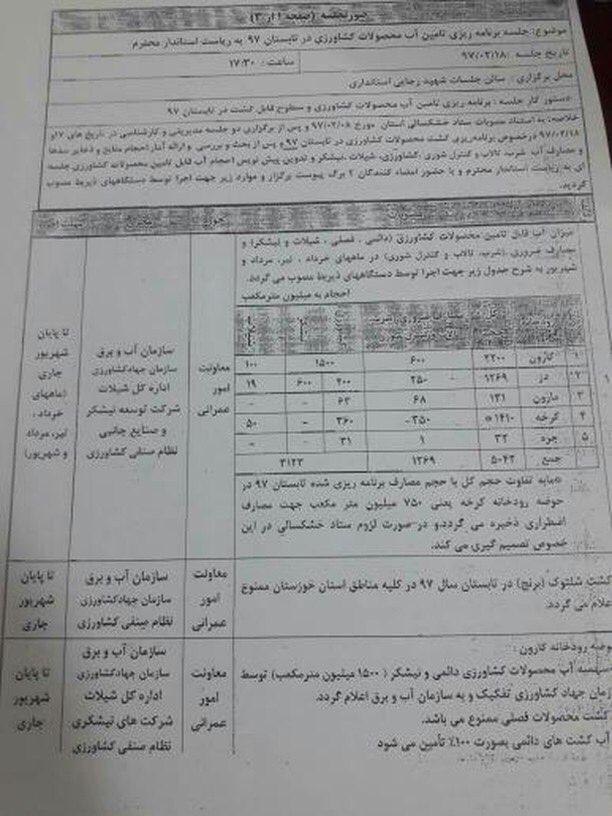 صورتجلسه (صفحه ۱ از ۳)
موضوع: جلسه برنامه ریزی تامین آب محصولات کشاورزی در تابستان ۹۷ به ریاست استاندار محترم
تاریخ جلسه :۹۷/۰۲/۱۸
ساعت : ۱۷:۳۰
محل برگزاری : سالن جلسات شهید رجایی استانداری
دستور کار جلسه : برنامه ریزی تامین آب محصولات کشاورزی و سطوح قابل کشت در تابستان ۹۷
خلاصه: به استناد مصوبات ستاد خشکسالی استان مورخ ۹۷/۰۲/۰۸ و پس از برگزاری دو جلسه مدیریتی و کارشناسی در تاریخ های ۱۷و
۹۷/۰۲/۱۸ درخصوص برنامه‌ریزی کشت محصولات کشاورزی در تابستان ۹۷و پس از بحث و بررسی و ارائه آمار احجام منابع و ذخایر سدها
و مصارف آب شرب، تالاب و کنترل شوری ،کشاورزی، شیلات ،نیشکر و تدوین پیش نویس احجام آب قابل تامین محصولات کشاورزی جلسه
ای به ریاست استاندار محترم و با حضور امضاء کنندگان ۲ برگ پیوست برگزار و موارد زیر جهت اجرا توسط دستگاههای ذیربط مصوب
گردید.
میزان آب قابل تامین محصولات کشاورزی (دائمی ، فصلی ، شیلات و نیشکر) و
مصارف ضروری (شرب، تالاب و کنترل شوری) در ماههای خرداد ، تیر، مرداد و
شهریور به شرح جدول زیر جهت اجرا توسط دستگاههای ذیربط مصوب می گردد.
احجام به میلیون مترمکعب
۱ کارون ۲۲۰۰ ۶۰۰ ۱۵۰۰ ۱۰۰
۲ دز ۱۲۶۹ ۲۵۰ ۴۰۰ ۶۰۰ ۱۹
۳ مارون ۱۳۱ ۶۸ ۶۳ - -
۴ کرخه ۱۴۱۰ ۳۵۰ ۳۶۰ - ۵۰
۵ جره ۳۲ ۱ ۳۱ - -
جمع ۵۰۴۲ ۱۲۶۹ ۳۱۲۳
مابه تفاوت حجم کل با حجم مصارف برنامه ریزی شده تابستان ۹۷ در
حوضه رودخانه کرخه یعنی ۷۵۰ میلیون متر مکعب جهت مصارف
اضطراری ذخیره می گردد.و در صورت لزوم ستاد خشکسالی در این
خصوص تصمیم گیری می کند.
معاونت
امور
عمرانی
سازمان آب و برق
سازمان جهادکشاورزی
اداره کل شیلات
شرکت توسعه نیشکر
و صنایع جانبی
نظام صنفی کشاورزی
تا پایان
شهریور
جاری
(ماههای
خرداد ،
تیر، مرداد
و شهریور)
کشت شلتوک (برنج) در تابستان سال ۹۷ در کلیه مناطق استان خوزستان ممنوع
اعلام می گردد.
معاونت
امور
عمرانی
سازمان آب و برق
سازمان جهادکشاورزی
نظام صنفی کشاورزی
تا پایان
شهریور
جاری
حوضه رودخانه کارون :
سهمیه آب محصولات کشاورزی دائمی و نیشکر ( ۱۵۰۰ میلیون مترمکعب) توسط
سازمان جهاد کشاورزی تفکیک و به سازمان آب و برق اعلام گردد.
کشت محصولات فصلی ممنوع می باشد.
آب کشت های دائمی بصورت ۱۰۰٪ تأمین می شود
معاونت
امور
عمرانی
سازمان آب و برق
سازمان جهادکشاورزی
اداره کل شیلات
شرکت های نیشکری
نظام صنفی کشاورزی
تا پایان
شهریور
جاری